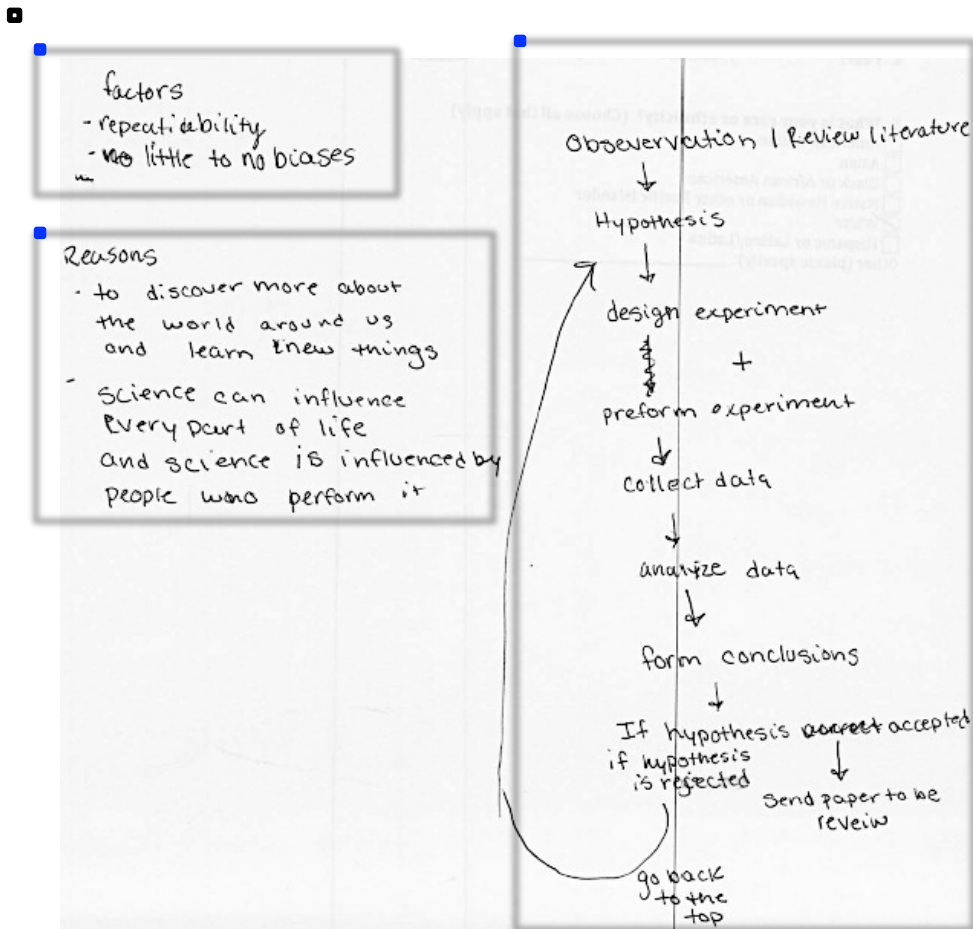 factors
- repeatiability
- little to no biases
Reasons
- to discover more about
the world around us
and learn new things
- science can influence
every part of life
and science is influenced by
people who perform it
Obsevervation | Review literature
Hypothesis
design experiment
+
preform experiment
collect data
analyze data
form conclusions
If hypothesis accepted
if hypothesis
is rejected
Send paper to be
reveiw
go back
to the
top